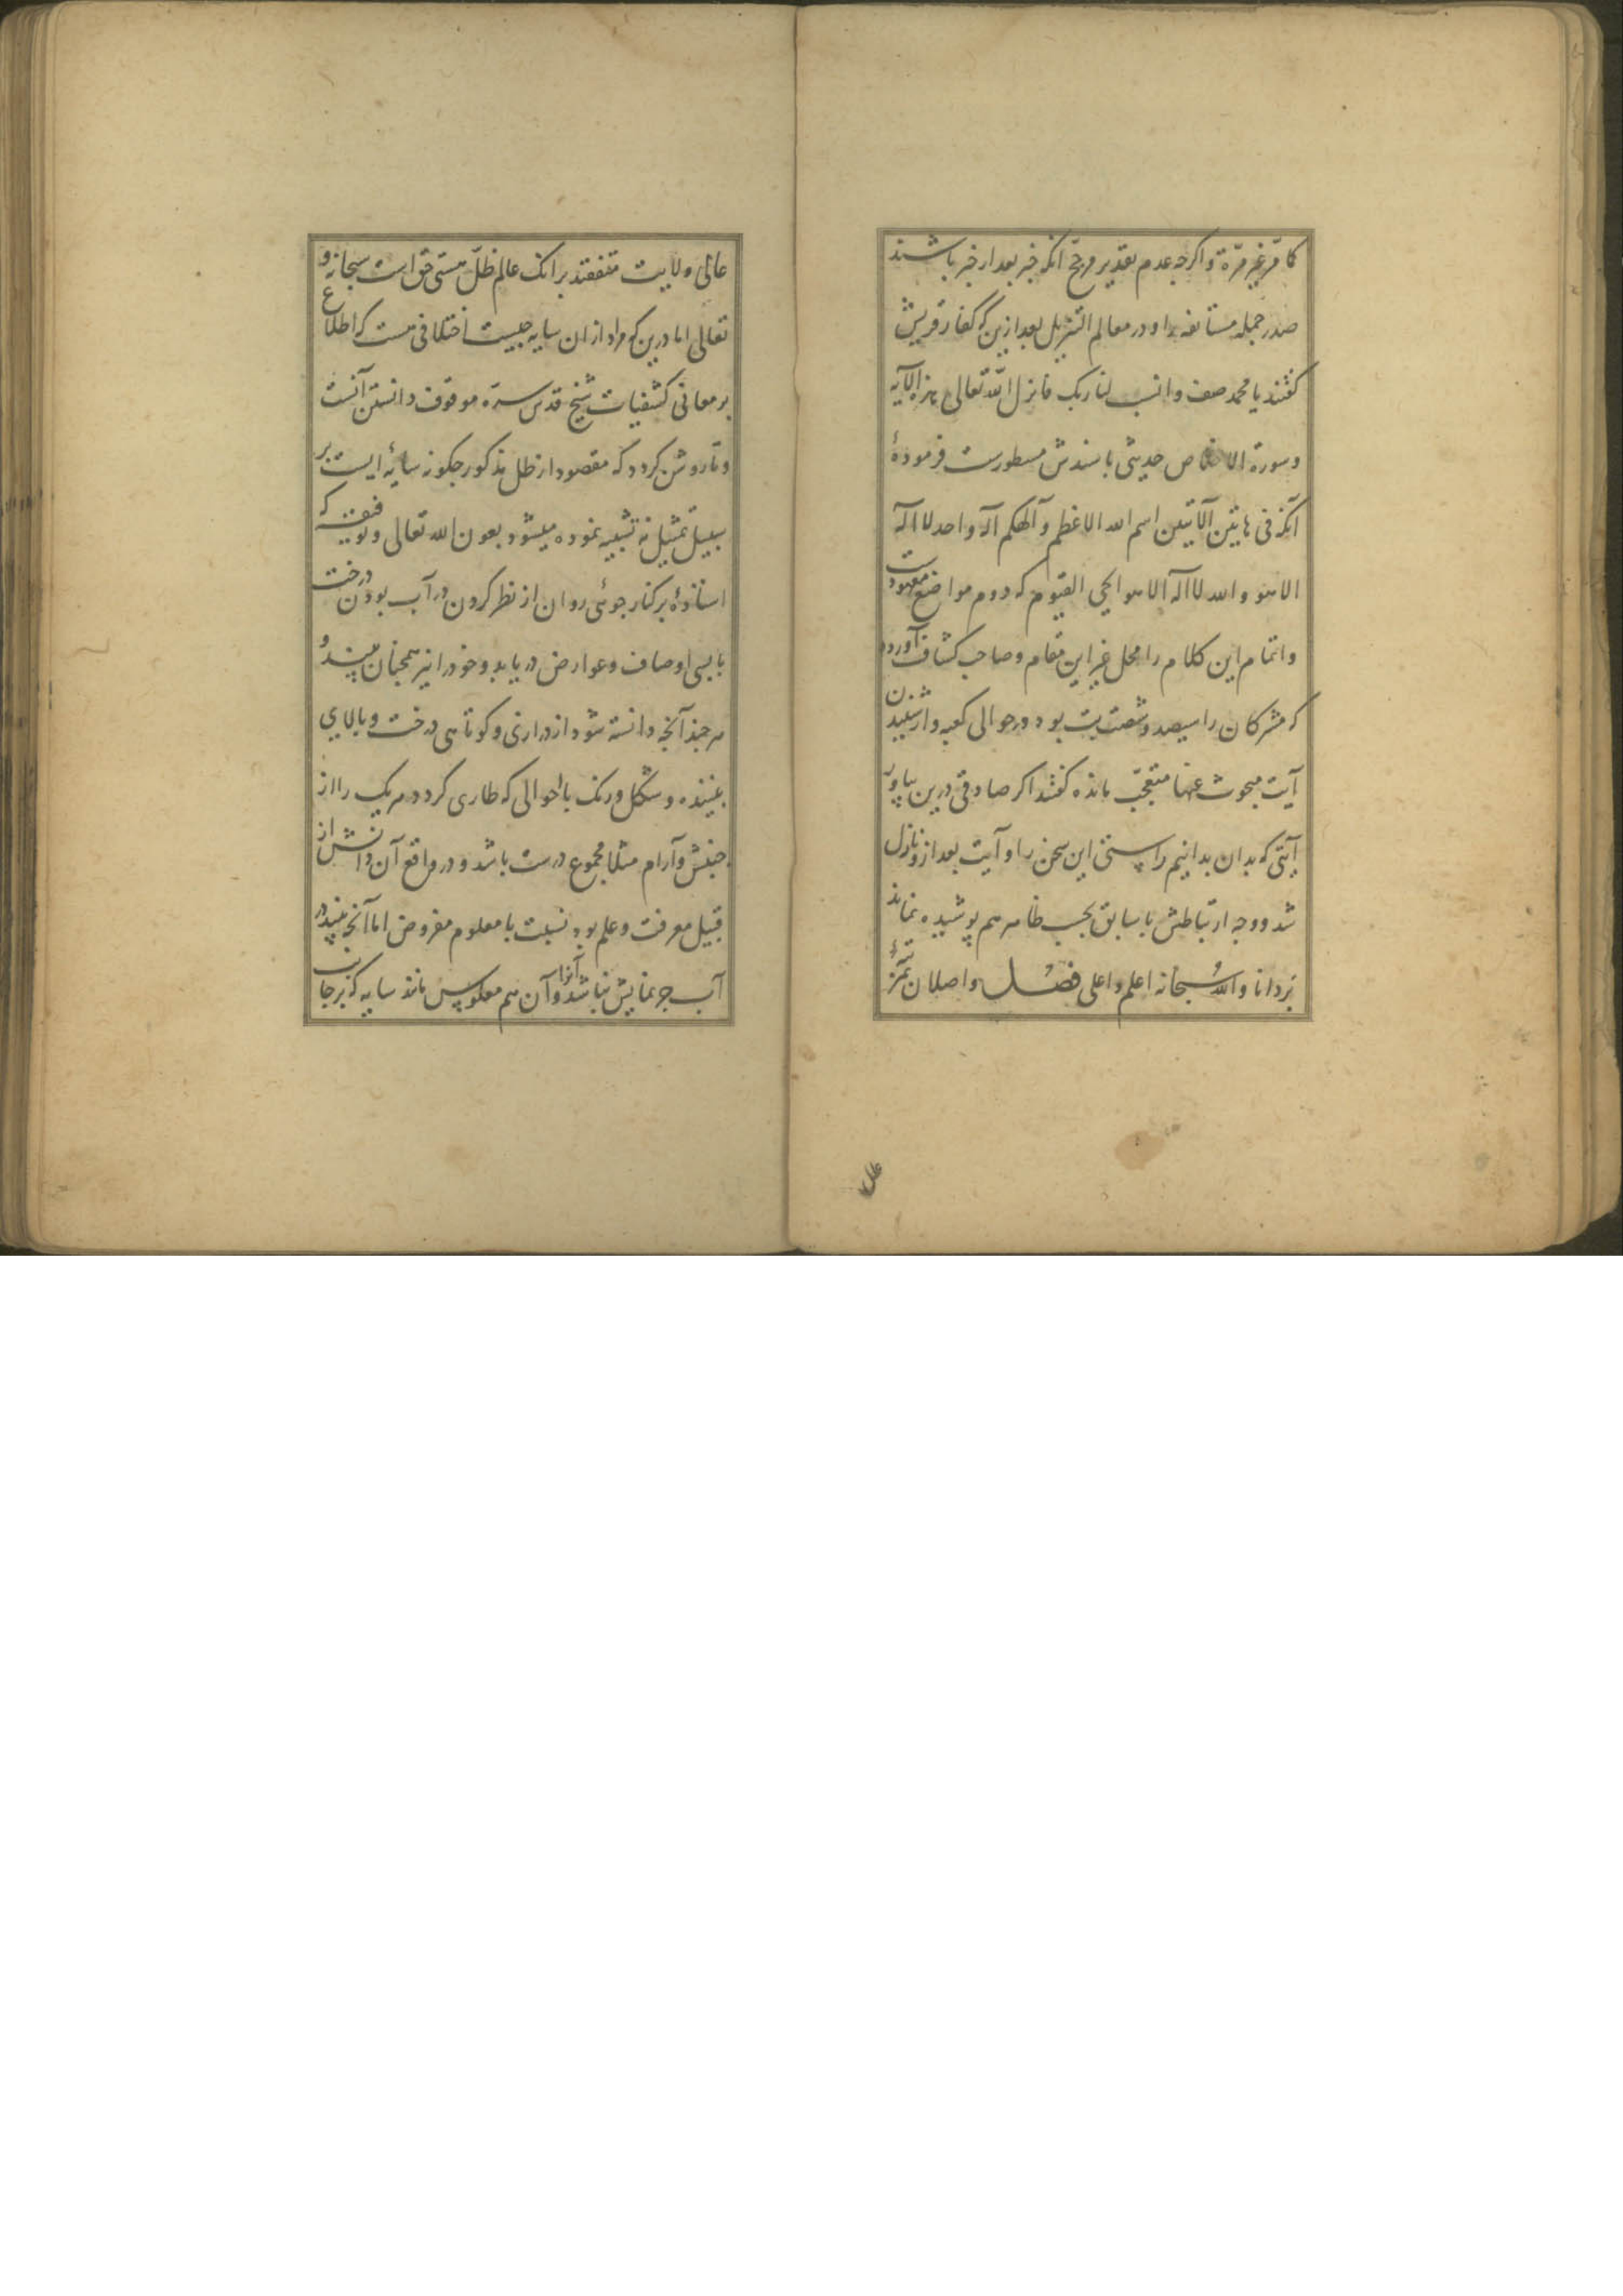 کما قرّ غیر مرّة و اکرچه عدم تقدیر مرجّح آنکه خبر بعد از خبر باشند
صدر جمله مستانفه را و در معالم التنزیل بعد ازین که کفار قریش
کفتند یا محمد صف و انسب لنا ربک فانزل الله تعالی هذه الآیه
و سورة الاخلاص حدیثی باسندش مسطورست فرمودهٔ
آنکه فی هاتین الآیتین اسم الله الاعظم و آلهکم آله واحد لا اله
الا هو و الله لا اله الا هو الحی القیوم که دوم مواضع معهودست
و اتمام این کلام را محل غیر این مقام و صاحب کشاف آورده
که مشرکان را سیصد و شصت بت بود در حوالی کعبه و از شنیدن
آیت مبحوث عنها متعجّب مانده کفتند اکر صادقی درین بیاور
آیتی که بدان بدانیم راستی این سخن را و آیت بعد ازو نازل
شد و وجه ارتباطش با سابق بحسب ظاهر هم پوشیده نماند
بر دانا و الله سبحانه اعلم و اعلی فصل و اصلان
عالی
عالی ولایت متفقند بر انک عالم ظلّ هستی حق است سبحانه و
تعالی اما درین که مراد از ان سایه چیست اختلافی هست که اطلاع
بر معانی کشفیات شیخ قدس سره موقوف دانستن آنست
و تا روشن کردد که مقصود از ظل مذکور چکونه سایهٔ ایست بر
سبیل تمثیل نه تشبیه نموده میشود بعون الله تعالی و توفیقه که
استادهٔ بر کنار جوئی روان از نظر کردن در آب بودن درخت
با بسی اوصاف و عوارض دریابد و خود را نیز همچنان بیند و
هر چند آنچه دانسته شود از درازی و کوتاهی درخت و بالای
بیننده و شکل و رنک با احوالی که طاری کردد هر یک را از
جنبش و آرام مثلا مجموع درست باشد و در واقع آن دانش از
قبیل معرفت و علم بود نسبت با معلوم مفروض اما آنچه بیند در
آب جز نمایش نباشد آنرا و آن هم معکوس مانند سایه که بر جانب